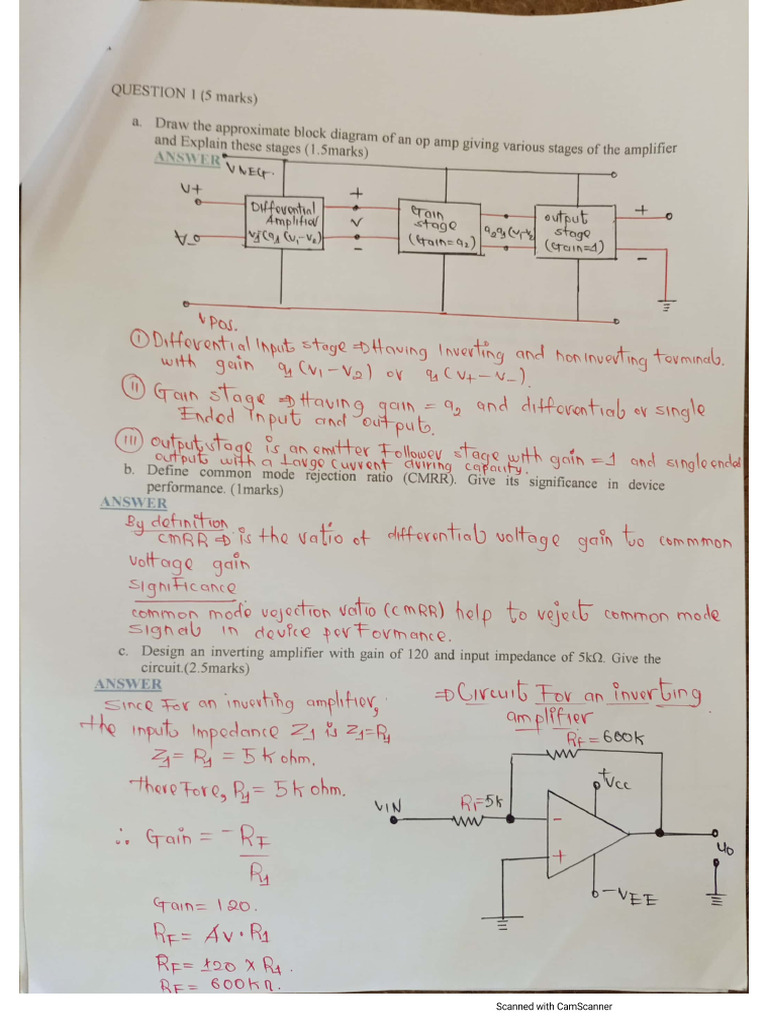 QUESTION 1 (5 marks)
a. Draw the approximate block diagram of an op amp giving various stages of the amplifier
and Explain these stages (1.5marks)
ANSWER
V+
Differential
Amplifier
+
V
-
Gain
stage
(Gain=a2)
output
stage
(Gain=1)
+
-
V_
V Pos.
(I) Differential Input stage ⇒ Having Inverting and noninverting terminal.
with gain a1 (V1 – V2) or a1 (V+ – V-).
(II) Gain stage ⇒ Having gain = a2 and differential or single
Ended Input and output.
(III) output stage is an emitter Follower stage with gain = 1 and single ended
output with a large current driving capacity.
b. Define common mode rejection ratio (CMRR). Give its significance in device
performance. (1marks)
ANSWER
By definition
CMRR ⇒ is the ratio of differential voltage gain to common
voltage gain
significance
common mode rejection ratio (CMRR) help to reject common mode
signal in device performance.
c. Design an inverting amplifier with gain of 120 and input impedance of 5kΩ. Give the
circuit.(2.5marks)
ANSWER
Since For an inverting amplifier,
the input Impedance Z1 is Z1=R1
Z1 = R1 = 5k ohm.
therefore, R1 = 5k ohm.
∴ Gain = -RF
R1
Gain= 120.
RF = Av · R1
RF = 120 x R1.
RF = 600kΩ.
⇒ Circuit For an inverting
amplifier
RF = 600K
+VCC
VIN
5k
-
+
Vo
-VEE
Scanned with CamScanner